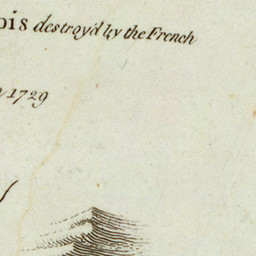 ois destroy'd by the French
1729